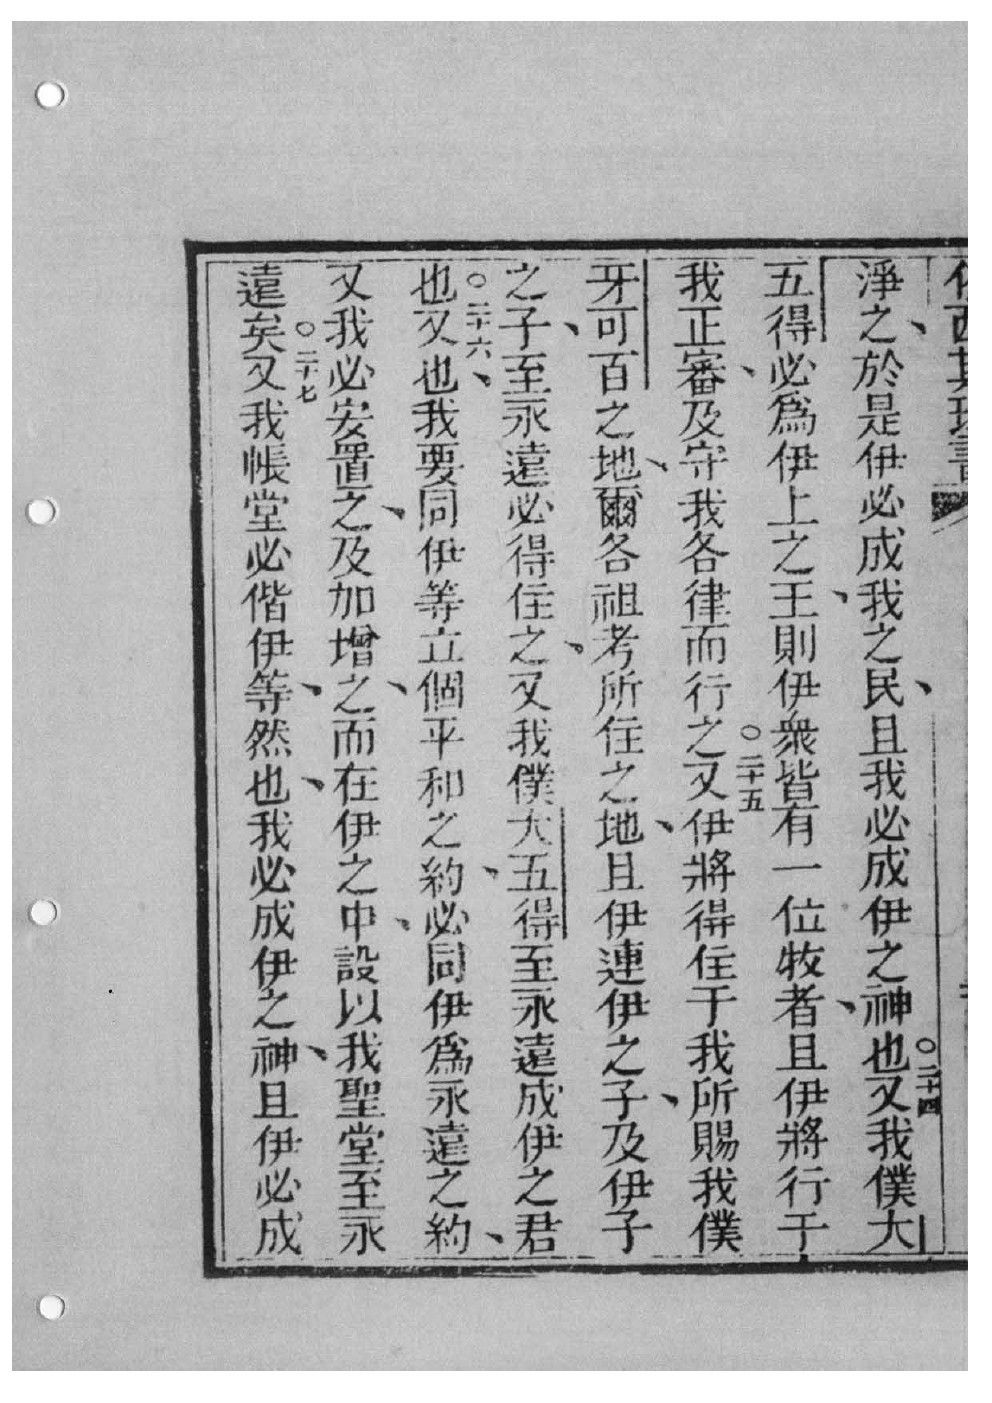 西其理書
淨之、於是伊必成我之民、且我必成伊之神也○二十四又我僕大
五得必爲伊上之王、則伊衆皆有一位牧者、且伊將行于
我正審、及守我各律而行之○二十五又伊將得住于我所賜我僕
牙可百之地、爾各祖考所住之地、且伊連伊之子、及伊子
之子、至永遠必得住之、又我僕大五得至永遠成伊之君
也○二十六又也、我要同伊等立個平和之約、必同伊爲永遠之約、
又我必安置之、及加增之、而在伊之中、設以我聖堂至永
遠矣○二十七又我帳堂必偕伊等、然也、我必成伊之神、且伊必成